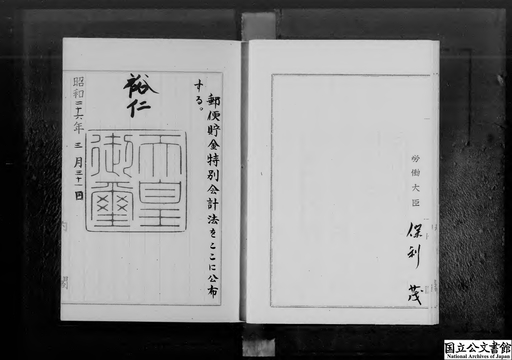 労働大臣
保利茂
郵便貯金特別会計法をここに公布
する。
裕仁
天皇
御璽
昭和二十六年三月三十一日
国立公文書館
National Archives of Japan